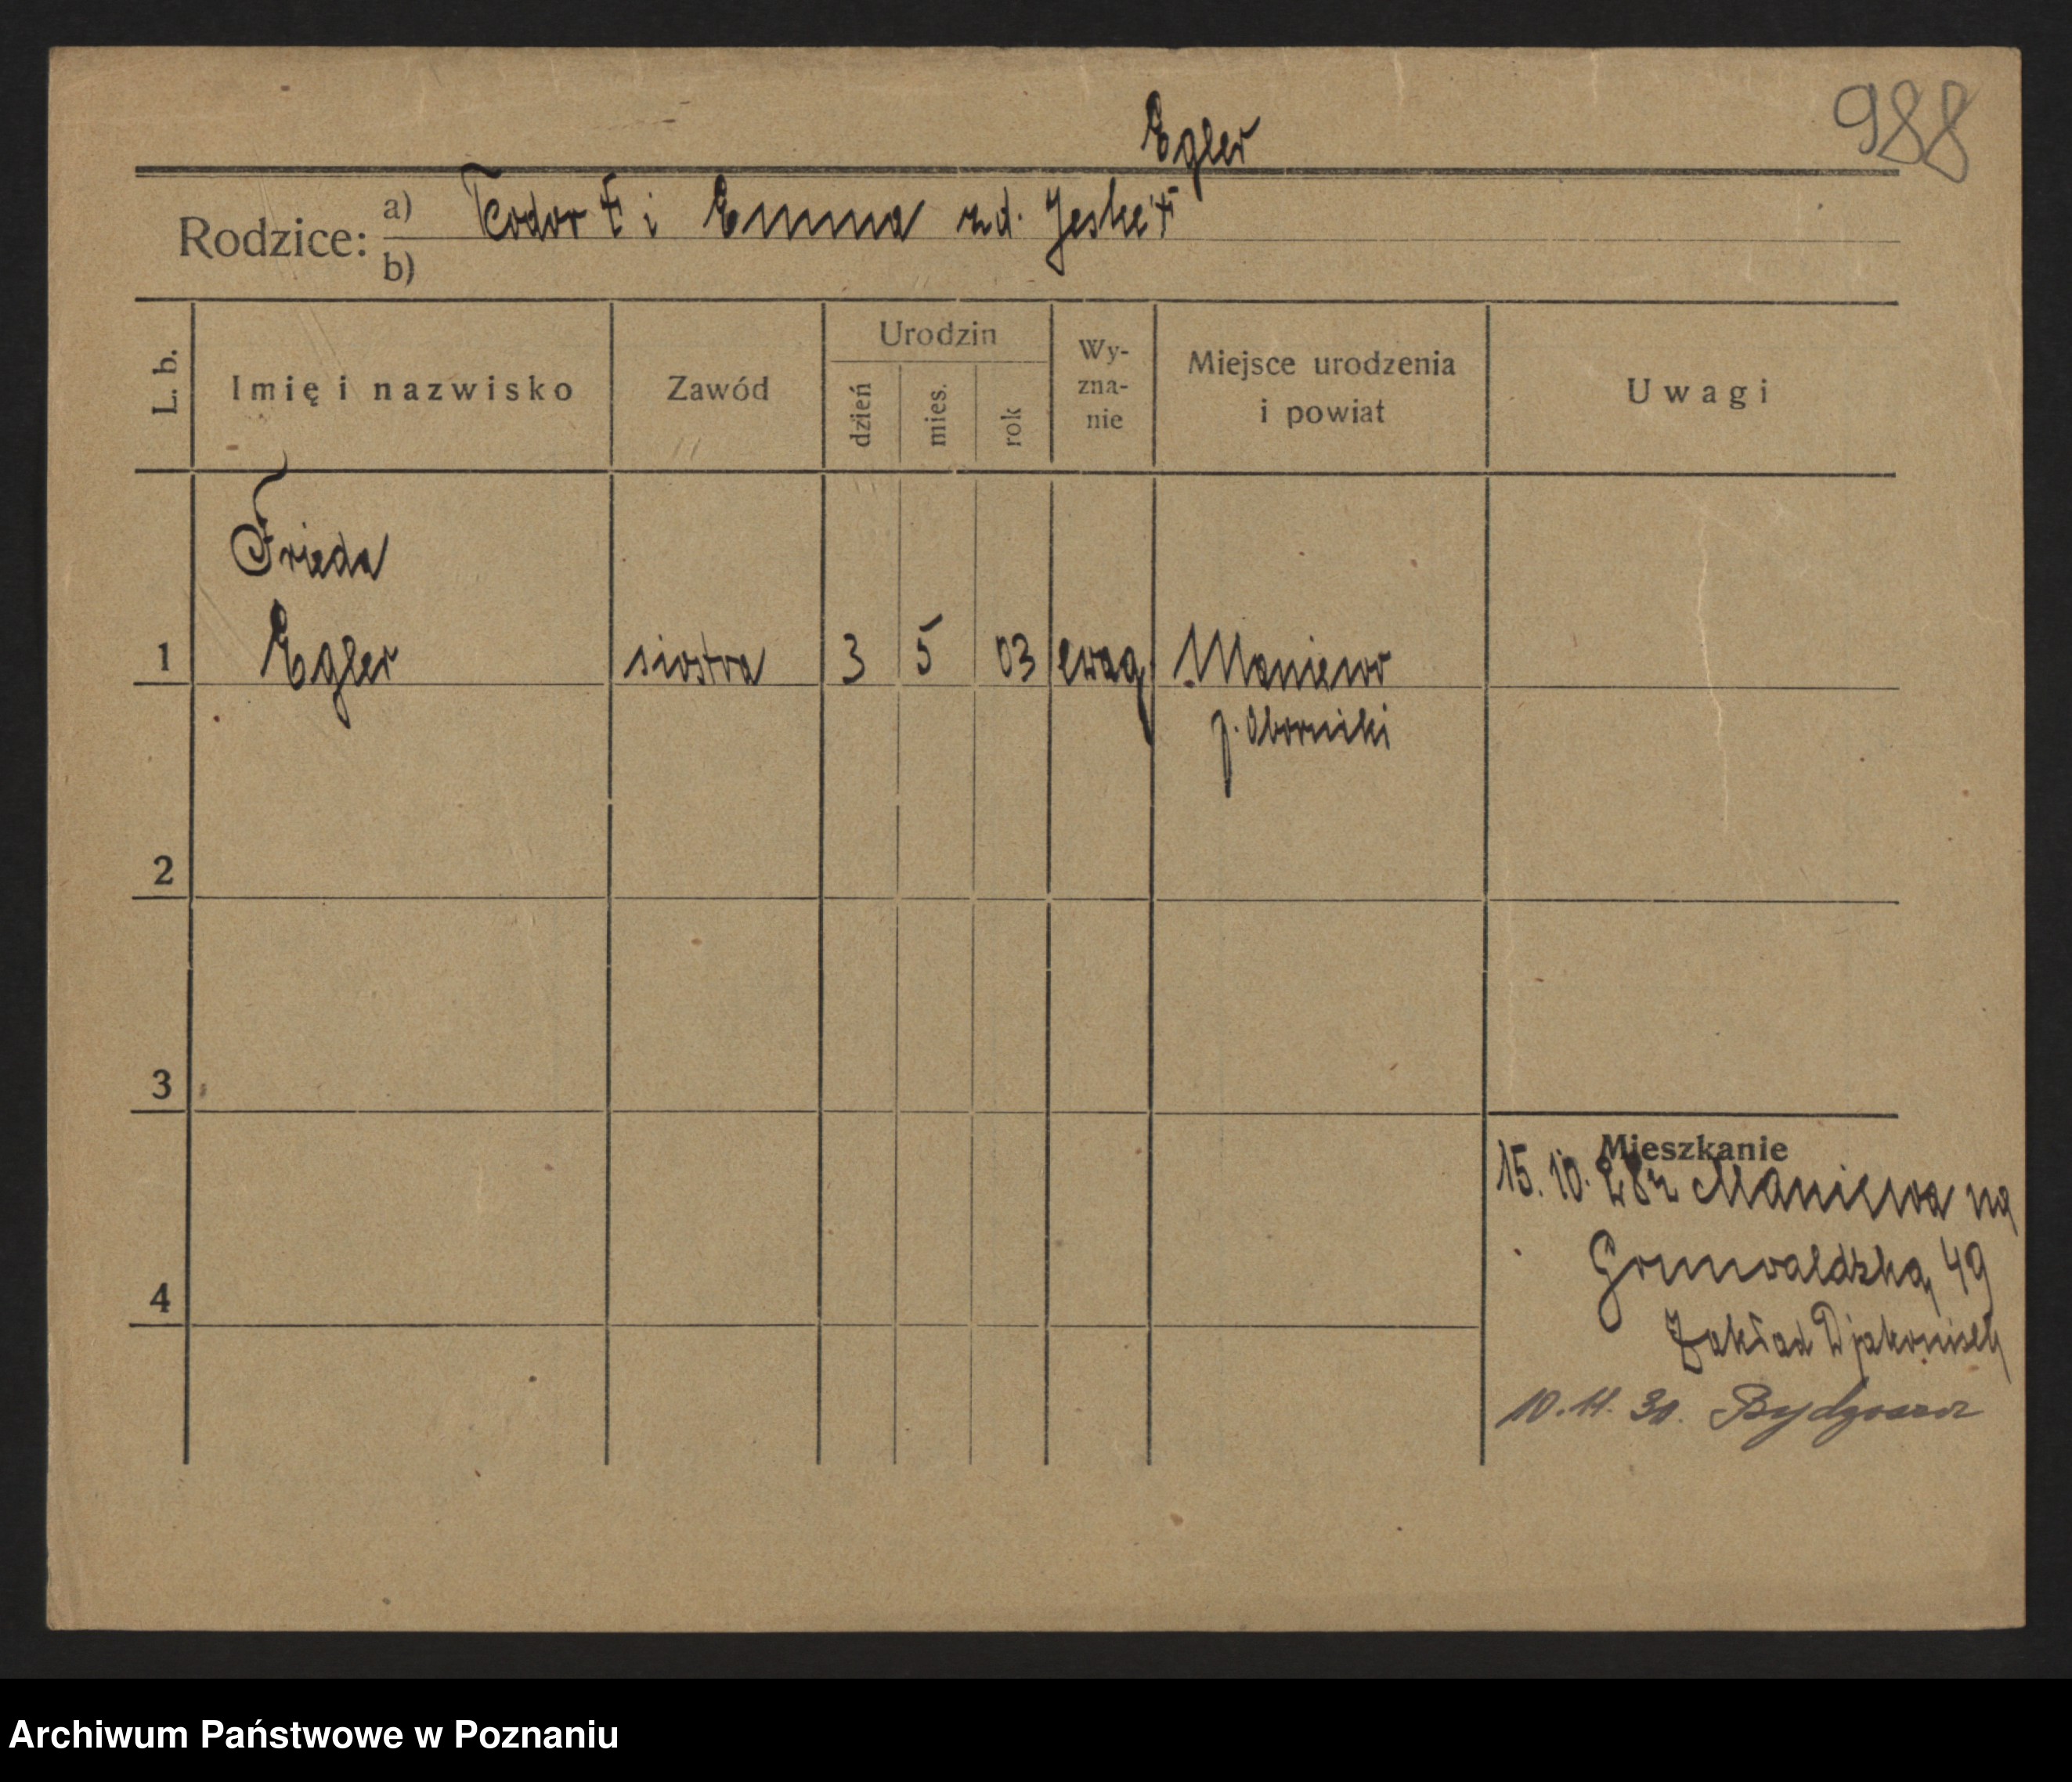 988
Egler
Rodzice: a) Teodor † i Emma zd. Jeske †
b)
L. b.
Imię i nazwisko
Zawód
Urodzin
dzień
mies.
rok
Wy-
zna-
nie
Miejsce urodzenia
i powiat
Uwagi
Frieda
1 Egler siostra 3 5 03 ewag. Maniewo
p. Oborniki
2
3
Mieszkanie
15. 10. 28 z Maniewa na
Grunwaldzką 49
4
Zakład Djakonisek
10. 11. 30. Bydgoszcz
Archiwum Państwowe w Poznaniu